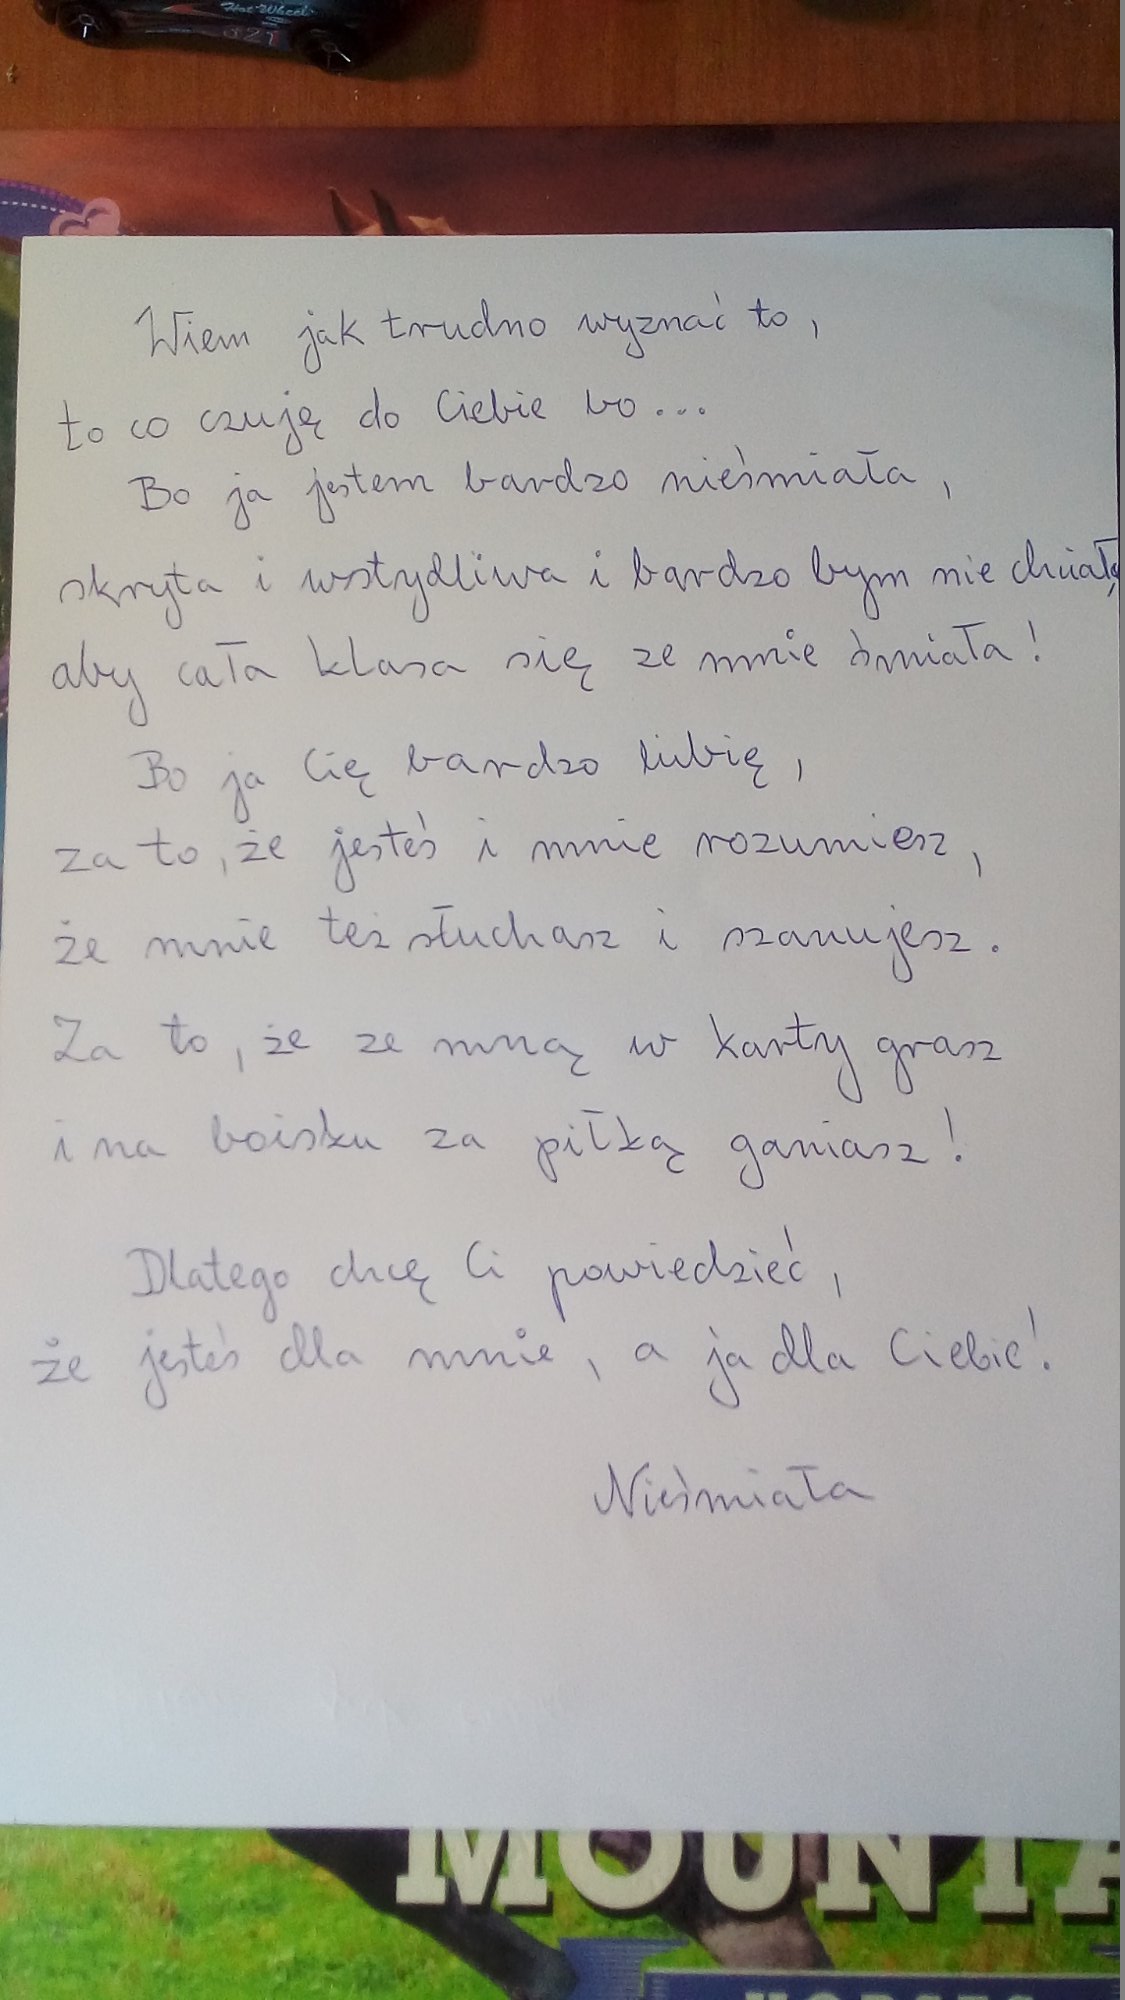 Hot Wheels
321
Wiem jak trudno wyznać to,
to co czuję do Ciebie bo...
Bo ja jestem bardzo nieśmiała,
skryta i wstydliwa i bardzo bym nie chciała,
aby cała klasa się ze mnie śmiała!
Bo ja Cię bardzo lubię,
za to, że jesteś i mnie rozumiesz,
że mnie też słuchasz i szanujesz.
Za to, że ze mną w karty grasz
i na boisku za piłką ganiasz!
Dlatego chcę Ci powiedzieć,
że jesteś dla mnie, a ja dla Ciebie!
Nieśmiała
MOUNTA
HORSES